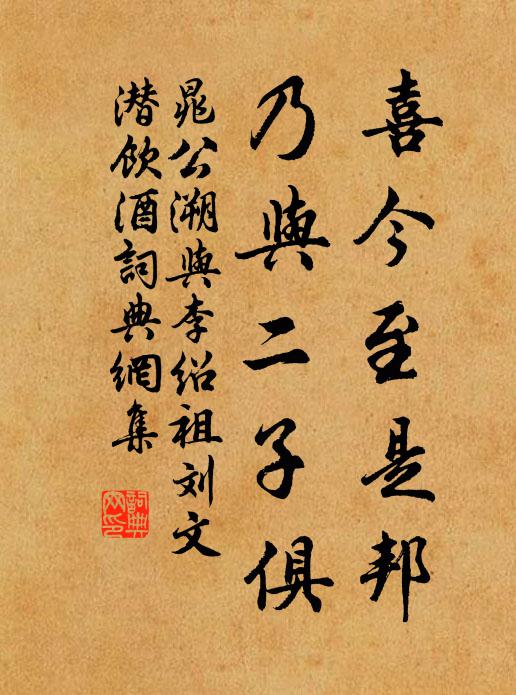 喜今至是邦
乃與二子俱
晁公溯與李紹祖刘文
潜飲酒詞典網集
詞典
网印